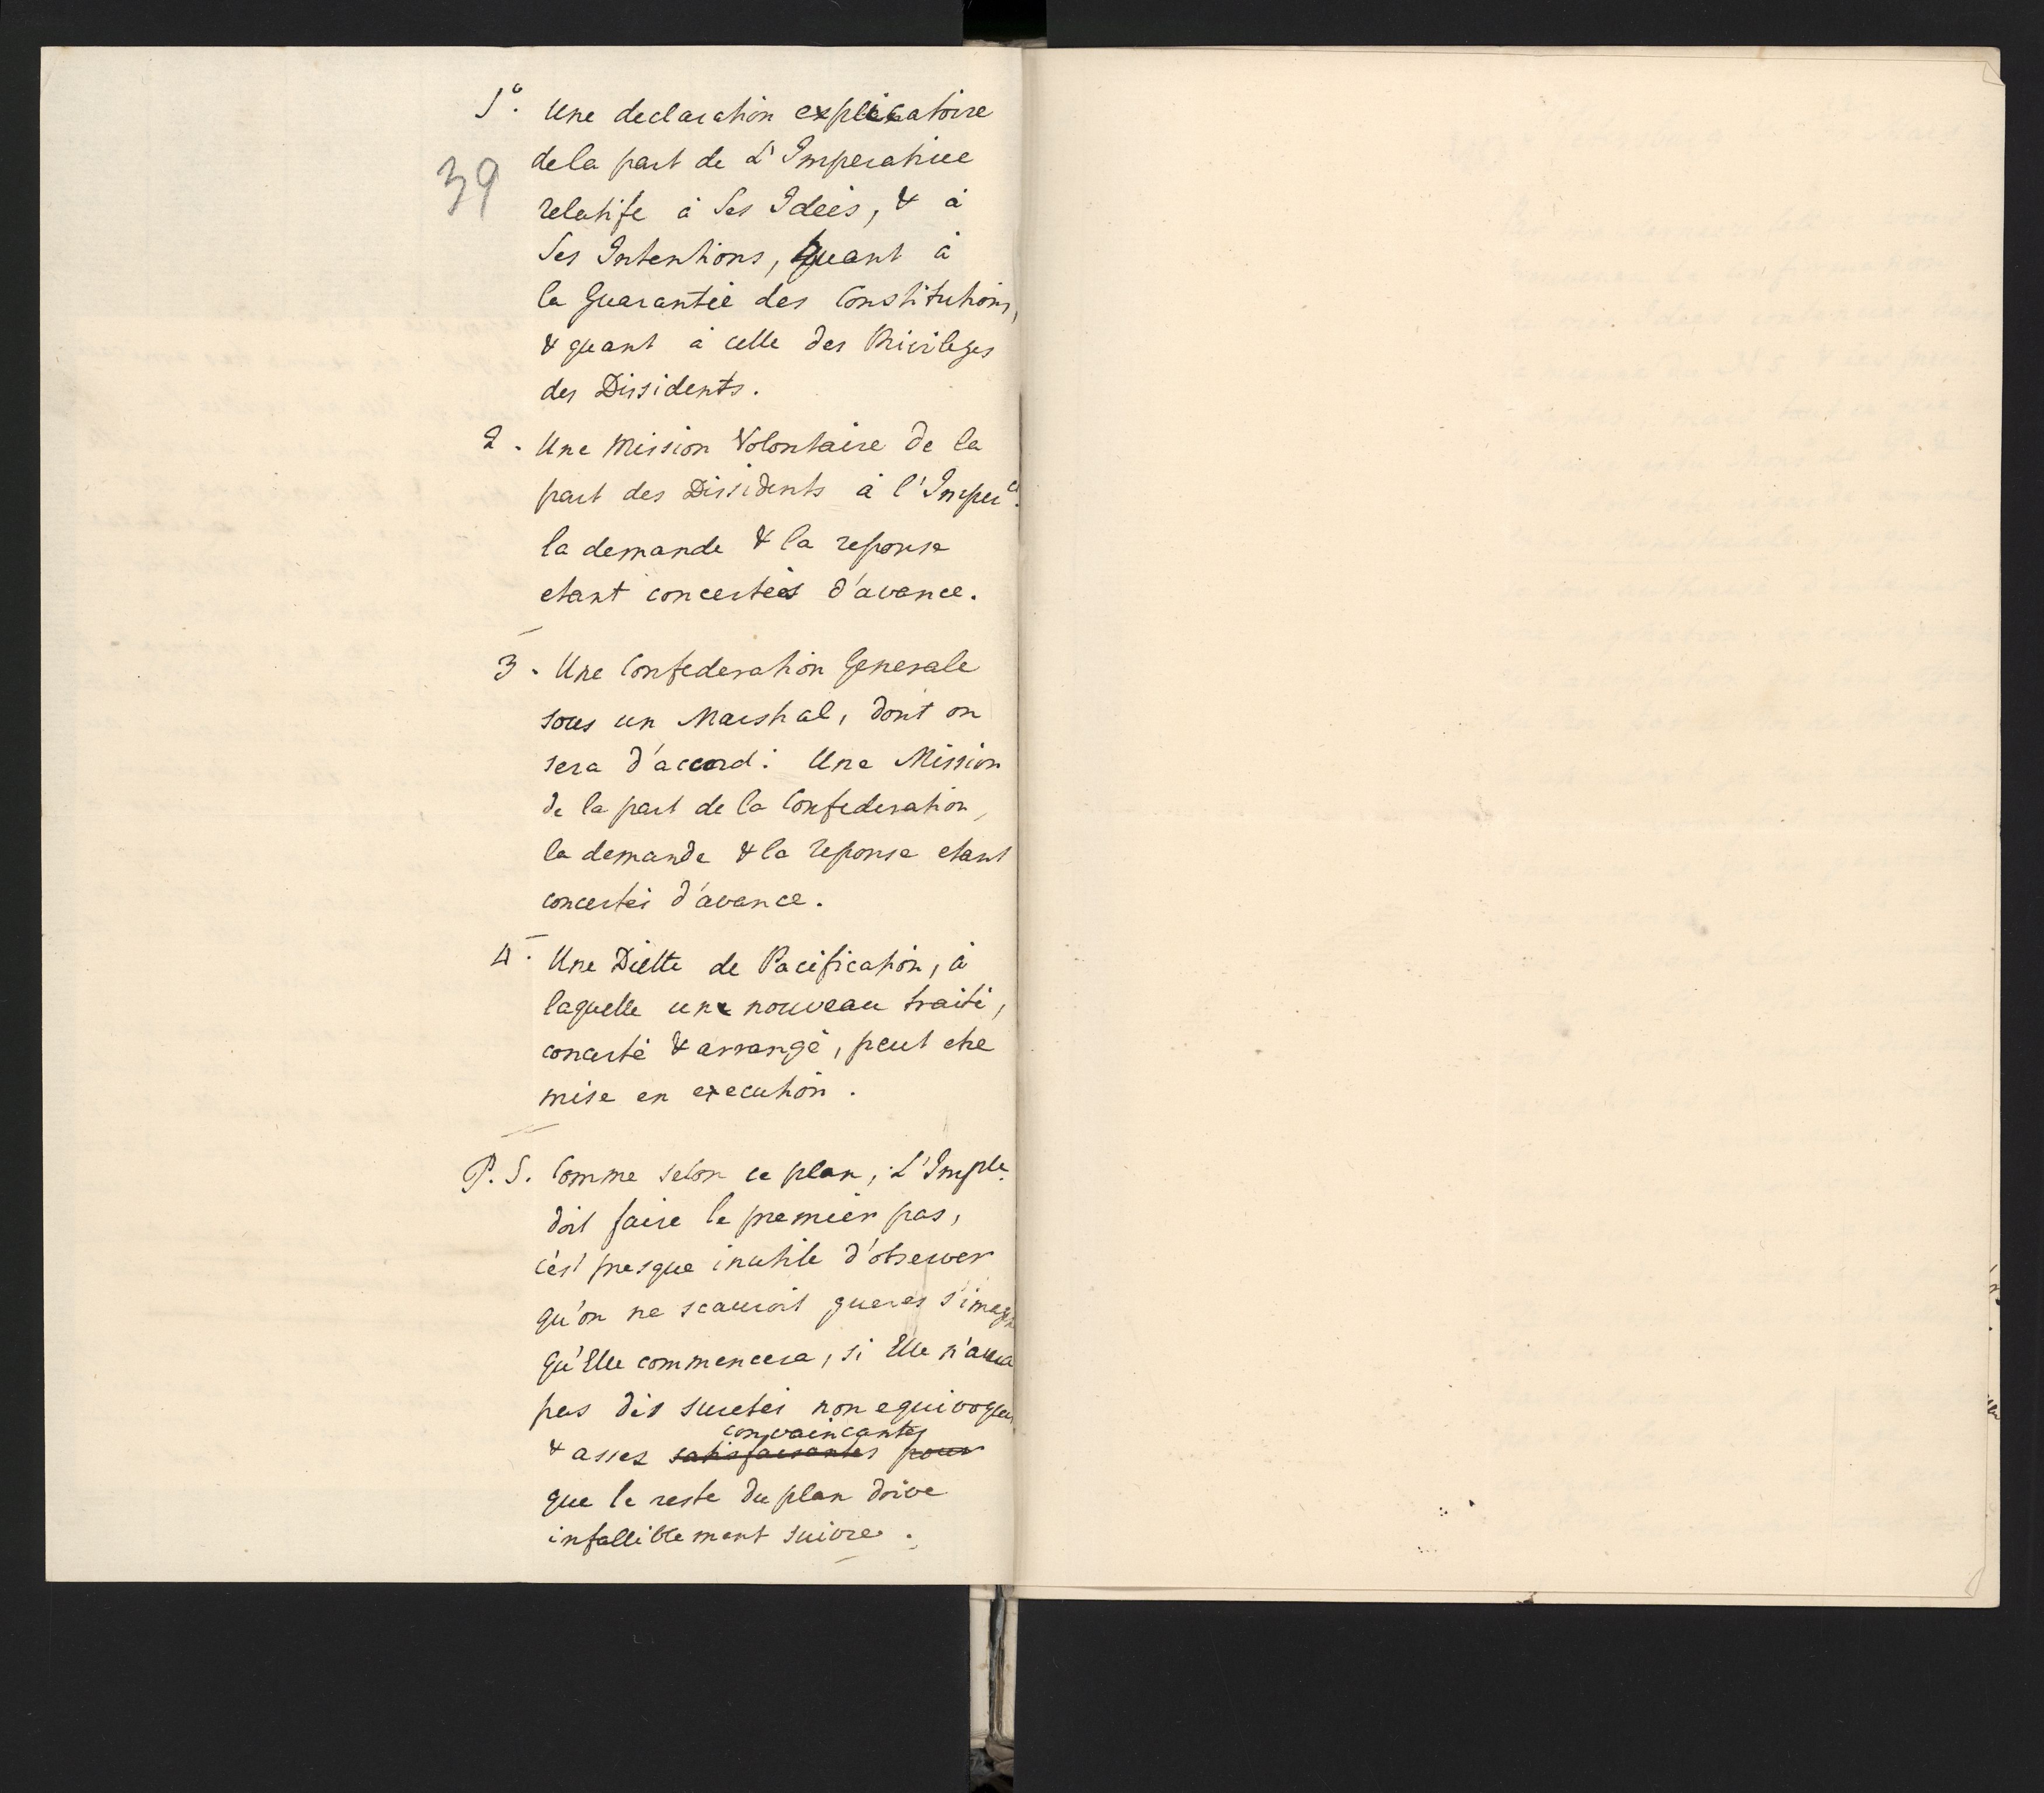 1°. Une declaration explicatoire
39
dela part de L'Imperatrice
relatife à Ses Idées, & à
Ses Intentions, quant à
la Guarantie des Constitutions,
& quant à celle des Privileges
des Dissidents.
2. Une Mission Volontaire de la
part des Dissidents à l'Imper^ce.
la demande & la reponse
etant concertées d'avance.
3. Une Confederation Generale
sous un Marshal, dont on
sera d'accord: Une Mission
de la part de la Confederation,
la demande & la reponse etant
concertés d'avance.
4. Une Diette de Pacification, à
laquelle une nouveau traité,
concerté & arrangé, peut etre
mise en execution.
P.S. Comme selon ce plan, L'Imple.
doit faire le premier pas,
c'est presque inutile d'observer
qu'on ne scauroit gueres s'imagin
qu'Elle commencera, si Elle n'aura
pas des suretés non equivoques
convaincantes
& asses satisfaisantes pour
que le reste du plan doive
infalliblement suivre.